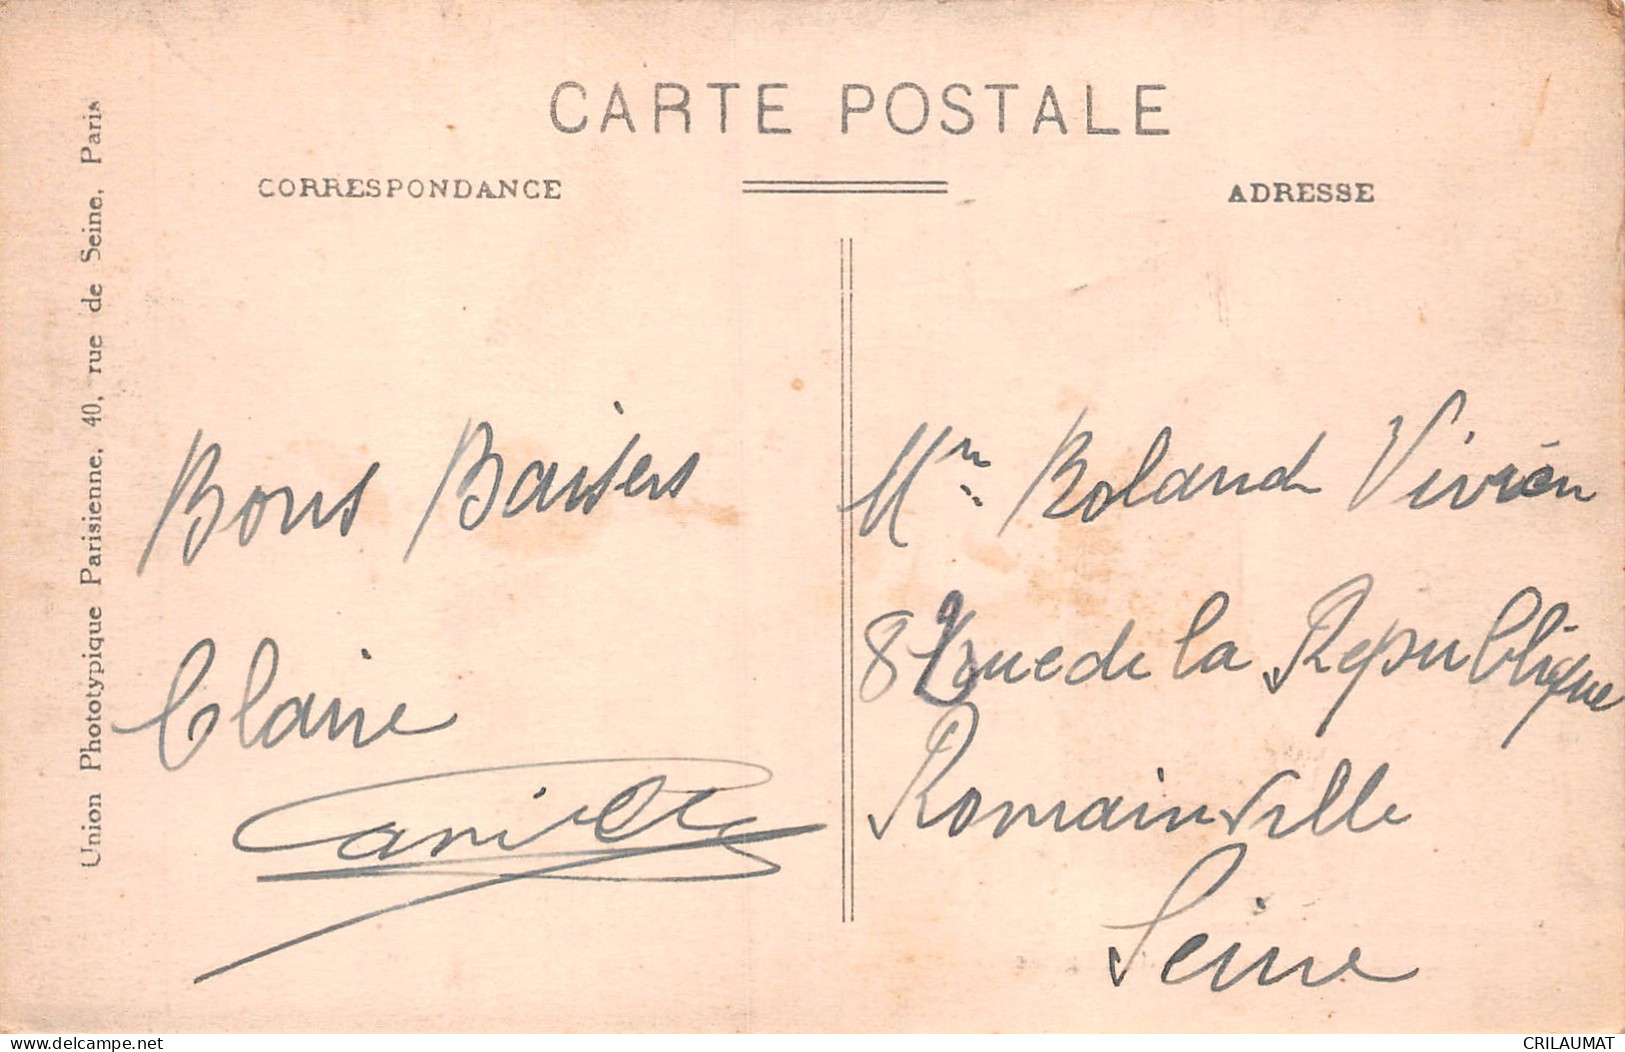 CARTE POSTALE
CORRESPONDANCE
ADRESSE
Union Phototypique Parisienne, 40, rue de Seine, Paris
Bons Baisers
Claire
Mr Roland Vivien
82 rue de la Republique
Romainville
Seine
www.delcampe.net
CRILAUMAT